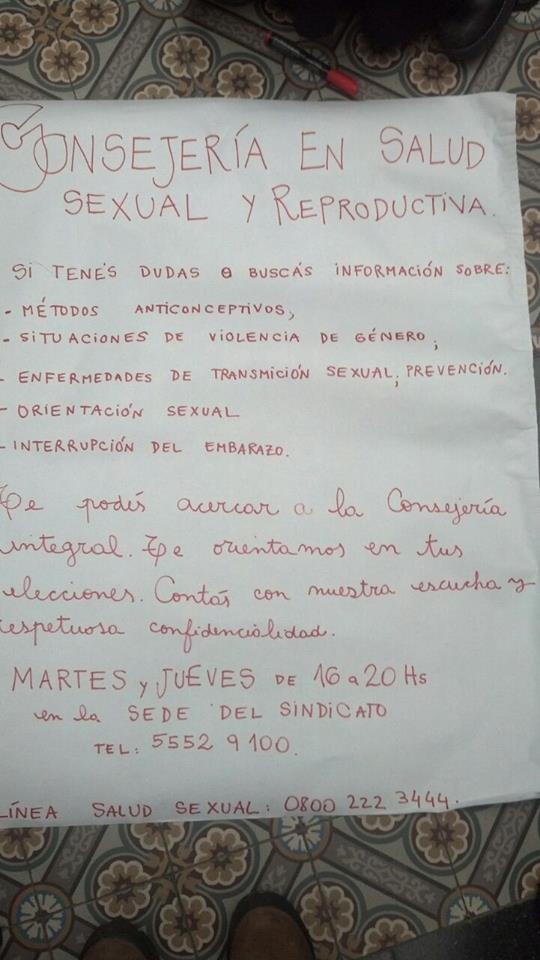 CONSEJERÍA EN SALUD
SEXUAL Y REPRODUCTIVA.
SI TENÉS DUDAS O BUSCÁS INFORMACIÓN SOBRE:
- MÉTODOS ANTICONCEPTIVOS;
- SITUACIONES DE VIOLENCIA DE GÉNERO;
- ENFERMEDADES DE TRANSMICIÓN SEXUAL; PREVENCIÓN.
- ORIENTACIÓN SEXUAL
- INTERRUPCIÓN DEL EMBARAZO.
Te podés acercar a la Consejería
integral. Te orientamos en tus
elecciones. Contás con nuestra escucha y
respetuosa confidencialidad.
MARTES y JUEVES DE 16 a 20 Hs
en la SEDE DEL SINDICATO
TEL: 5552 9100.
LÍNEA SALUD SEXUAL: 0800 222 3444.